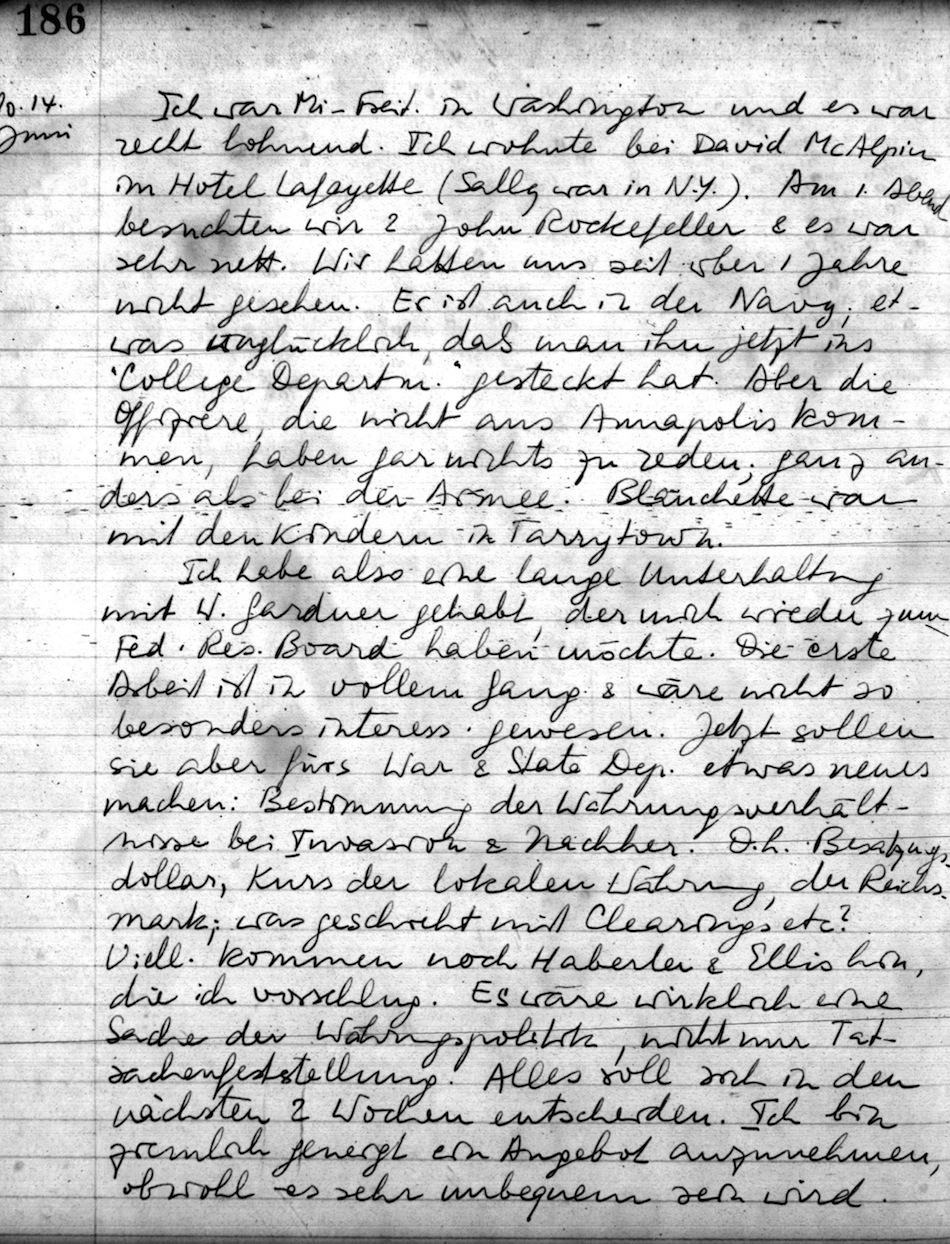 186
14.
Juni
Ich war Mi-Freit. in Washington und es war
recht lohnend. Ich wohnte bei David McAlpin
im Hotel Lafayette (Sally war in N.Y.). Am 1. Abend
besuchten wir 2 John Rockefeller & es war
sehr nett. Wir hatten uns seit über 1 Jahre
nicht gesehen. Er ist auch in der Navy, et-
was unglücklich, daß man ihn jetzt ins
"College Departm." gesteckt hat. Aber die
Offiziere, die nicht aus Annapolis kom-
men, haben gar nichts zu reden, ganz an-
ders als bei der Armee. Blanchette war
mit den Kindern in Tarrytown.
Ich habe also eine lange Unterhaltung
mit W. Gardner gehabt, der mich wieder zum
Fed. Res. Board haben möchte. Die erste
Arbeit ist in vollem Gang & wäre nicht so
besonders interess. gewesen. Jetzt sollen
sie aber fürs War & State Dep. etwas neues
machen: Bestimmung der Währungsverhält-
nisse bei Invasion & Nachher. D.h. Besatzungs-
dollar, Kurs der lokalen Währung, der Reichs-
mark; was geschieht mit Clearings etc?
Viell. kommen noch Haberler & Ellis hin,
die ich vorschlug. Es wäre wirklich eine
Sache der Währungspolitik, nicht nur Tat-
sachenfeststellung. Alles soll sich in den
nächsten 2 Wochen entscheiden. Ich bin
ziemlich geneigt ein Angebot anzunehmen,
obwohl es sehr unbequem sein wird.